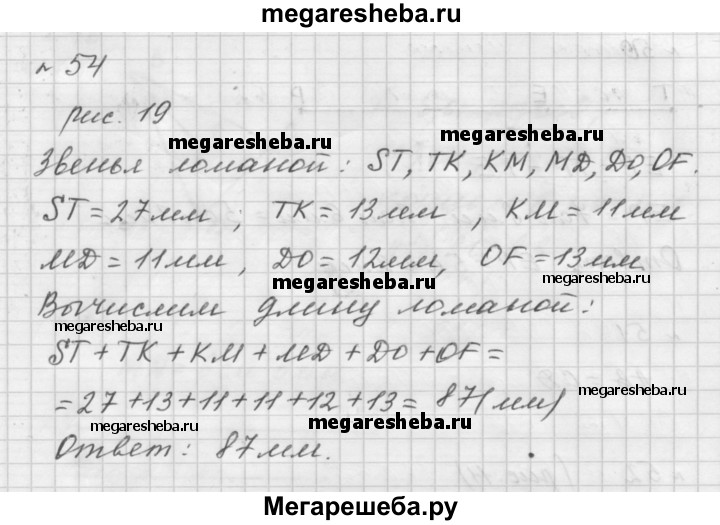 megaresheba.ru
№ 54
рис. 19
megaresheba.ru megaresheba.ru
Звенья ломаной: ST, TK, KM, MD, DO, OF.
ST = 27мм ; TK = 13мм , KM = 11мм
MD = 11мм , DO = 12мм, OF = 13мм
megaresheba.ru megaresheba.ru
Вычислим длину ломаной:
megaresheba.ru
ST + TK + KM + MD + DO + OF =
= 27 + 13 + 11 + 11 + 12 + 13 = 87(мм)
megaresheba.ru
megaresheba.ru megaresheba.ru
Ответ: 87мм.
Мегарешеба.ру